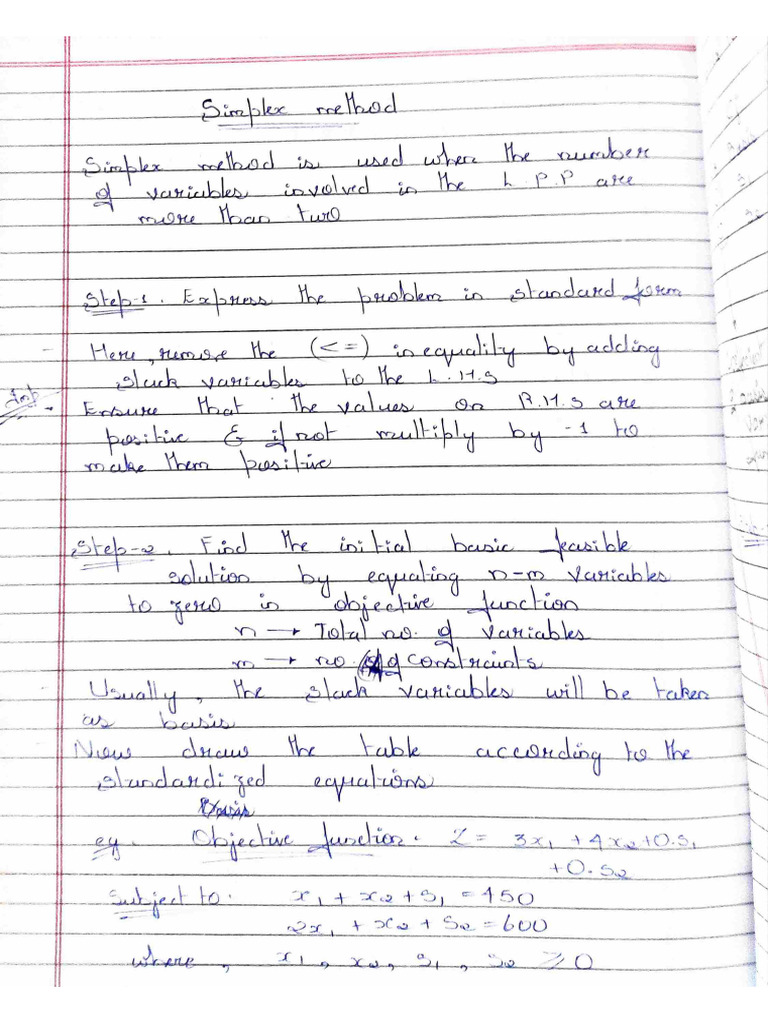 Simplex method
Simplex method is used when the number
of variables involved in the L.P.P are
more than two
Step-1. Express the problem in standard form
Here, remove the (<=) inequality by adding
slack variables to the L.H.S
Imp
Ensure that the values on R.H.S are
positive & if not multiply by -1 to
make them positive
Step-2. Find the initial basic feasible
solution by equating n-m variables
to zero in objective function
n → Total no. of variables
m → no. of constraints
Usually, the slack variables will be taken
as basis
Now draw the table according to the
standardized equations
eg. Objective function. Z = 3x₁ + 4x₂ + 0.s₁
+ 0.s₂
Subject to. x₁ + x₂ + s₁ = 450
2x₁ + x₂ + s₂ = 600
where, x₁, x₂, s₁, s₂ ≥ 0